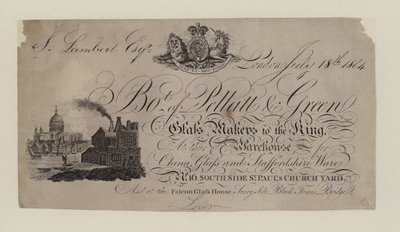 S. Lambert Esqr.
London July 18th 1864
Bot. of Pellatt & Green
Glass Makers to the King,
At their Warehouse for
China, Glass and Staffordshire Ware,
No. 16, SOUTH SIDE ST. PAUL'S CHURCH YARD,
And at the Falcon Glass House, Surry Side Black Friars Bridge
London